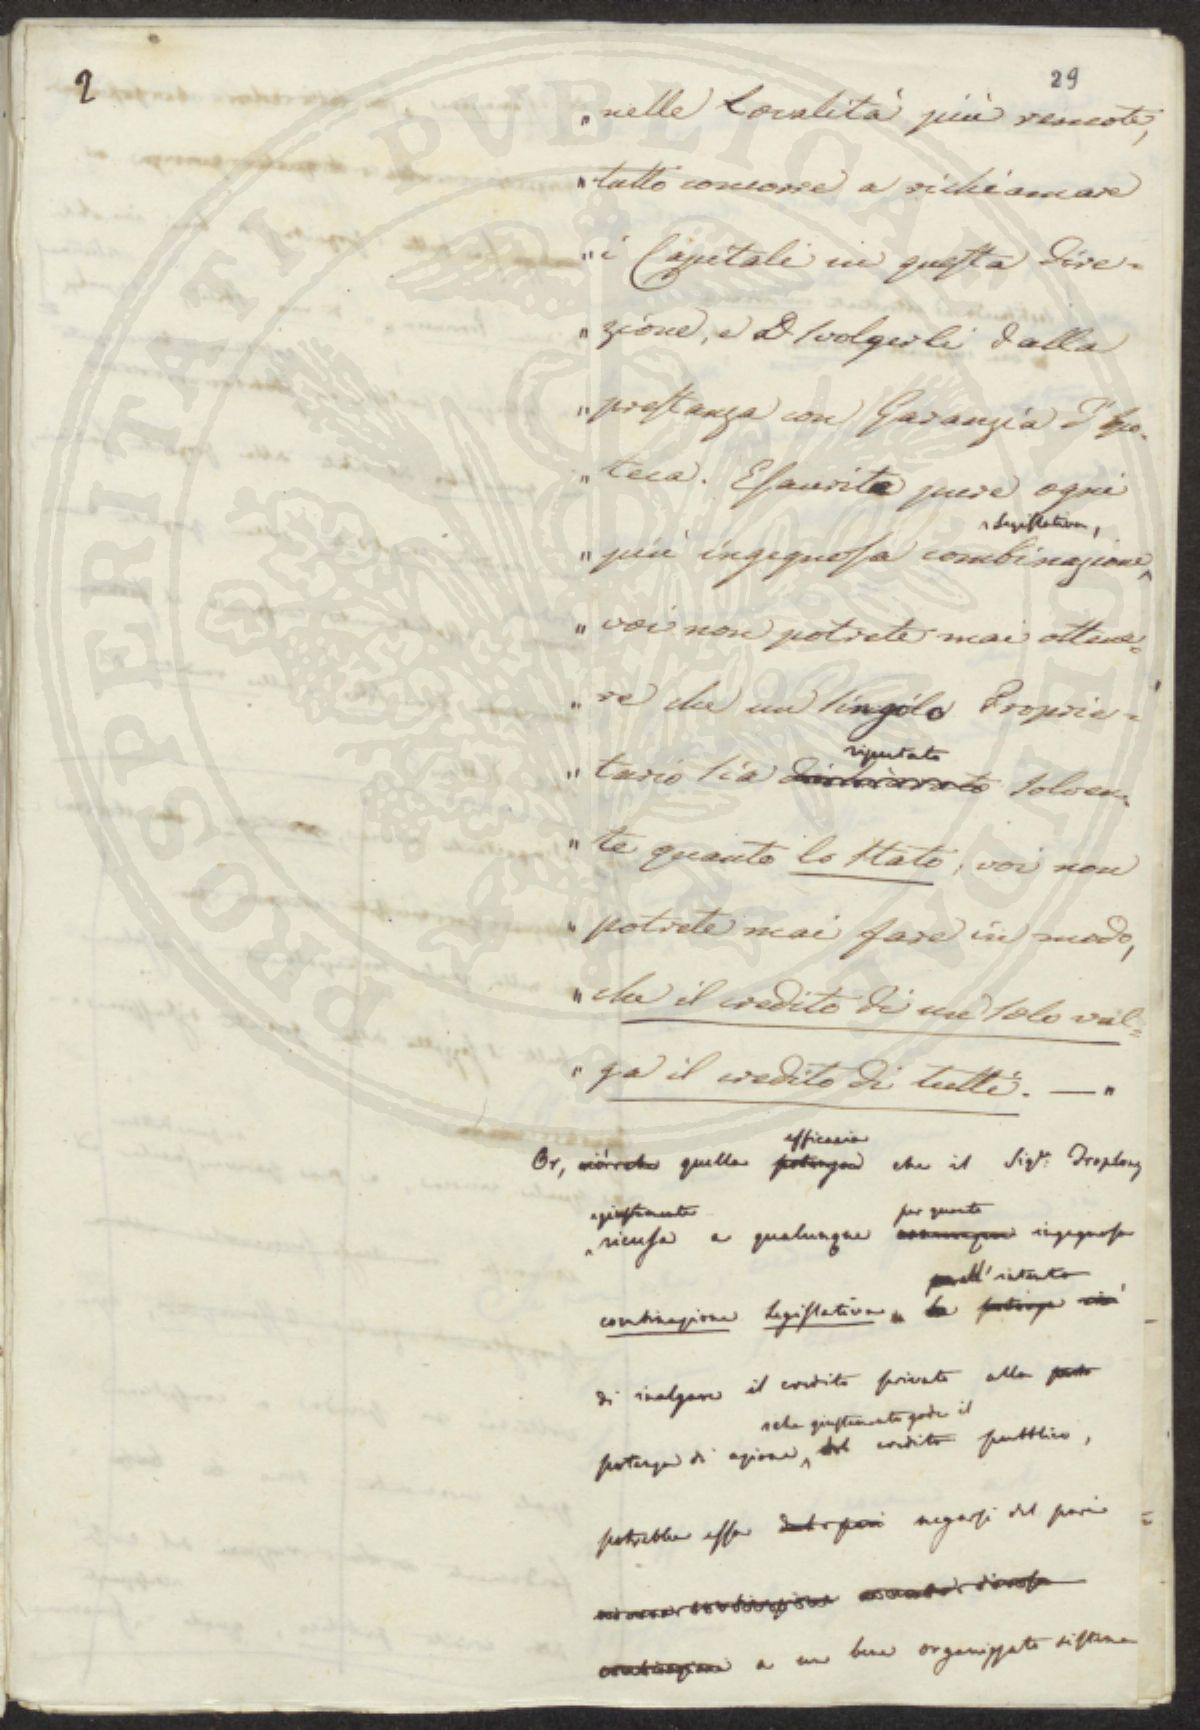 2
29
" nelle Località più remote,
" tutto concorre a richiamare
" i Capitali in questa dire=
" zione, e a svolgerli dalla
" prestanza con Garanzia d'Ipo=
" teca. Esaurite pure ogni
" più ingegnosa combinazione Legislativa,
" voi non potrete mai ottene=
" re che un singolo Proprie=
" tario sia riputato solven=
" te quanto lo Stato, voi non
" potrete mai fare in modo,
" che il credito di un solo val=
" ga il credito di tutti. — "
Or, quella efficacia che il Sigr. Troplong
giustamente ricusa a qualunque per quanto ingegnosa
combinazione Legislativa
di inalzare il credito privato alla
potenza di azione, che giustamente gode il credito pubblico,
potrebbe essa negarsi del pari
a un bene organizzato sistema
PROSPERITATI PUBLICAE